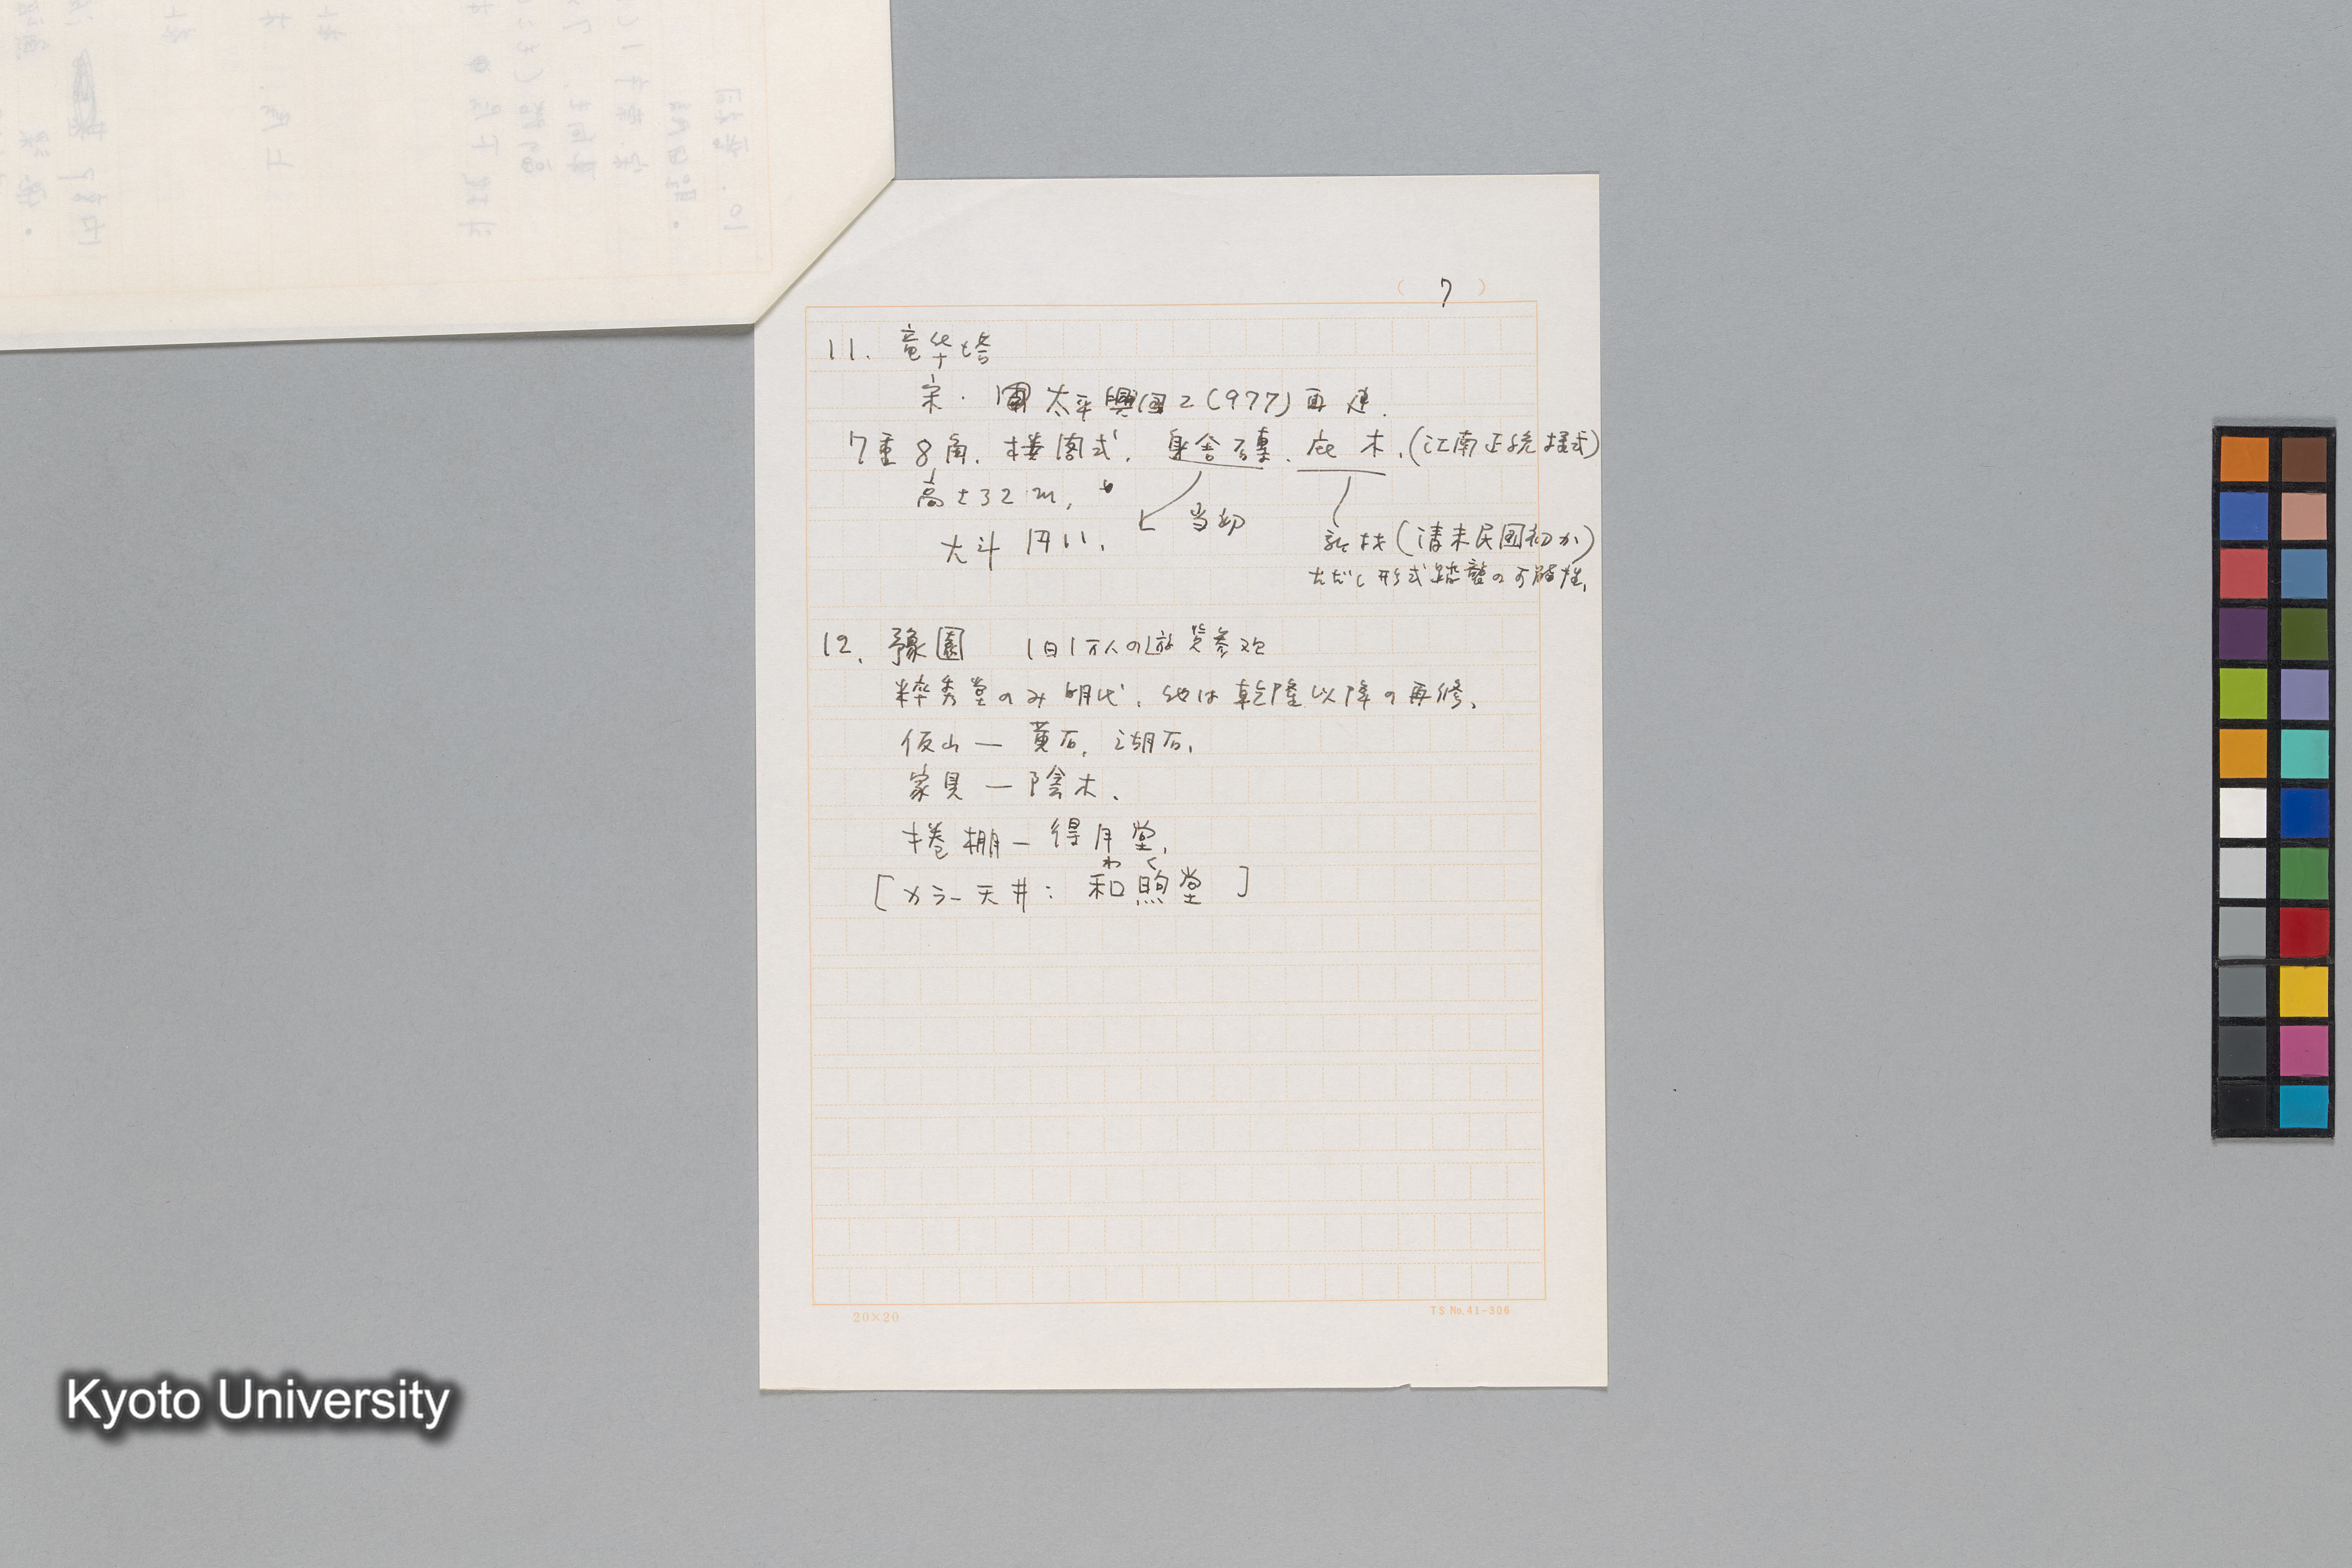 (7)
11. 竜华塔
宋. 太平興国2(977)再建.
7重8角. 楼閣式. 身舎磚. 庇木. (江南正統様式)
高さ32m.
当初
大斗円い.
新材(清末民国初か)
ただし形式踏襲の可能性.
12. 豫園 1日1万人の遊覧参观
粋秀堂のみ明代. 他は乾隆以降の再修.
仮山 — 黄石. 湖石.
家具 — 陰木.
捲棚 — 得月堂.
わ く
[カラー天井: 和煦堂]
20×20
TS No.41-306
Kyoto University